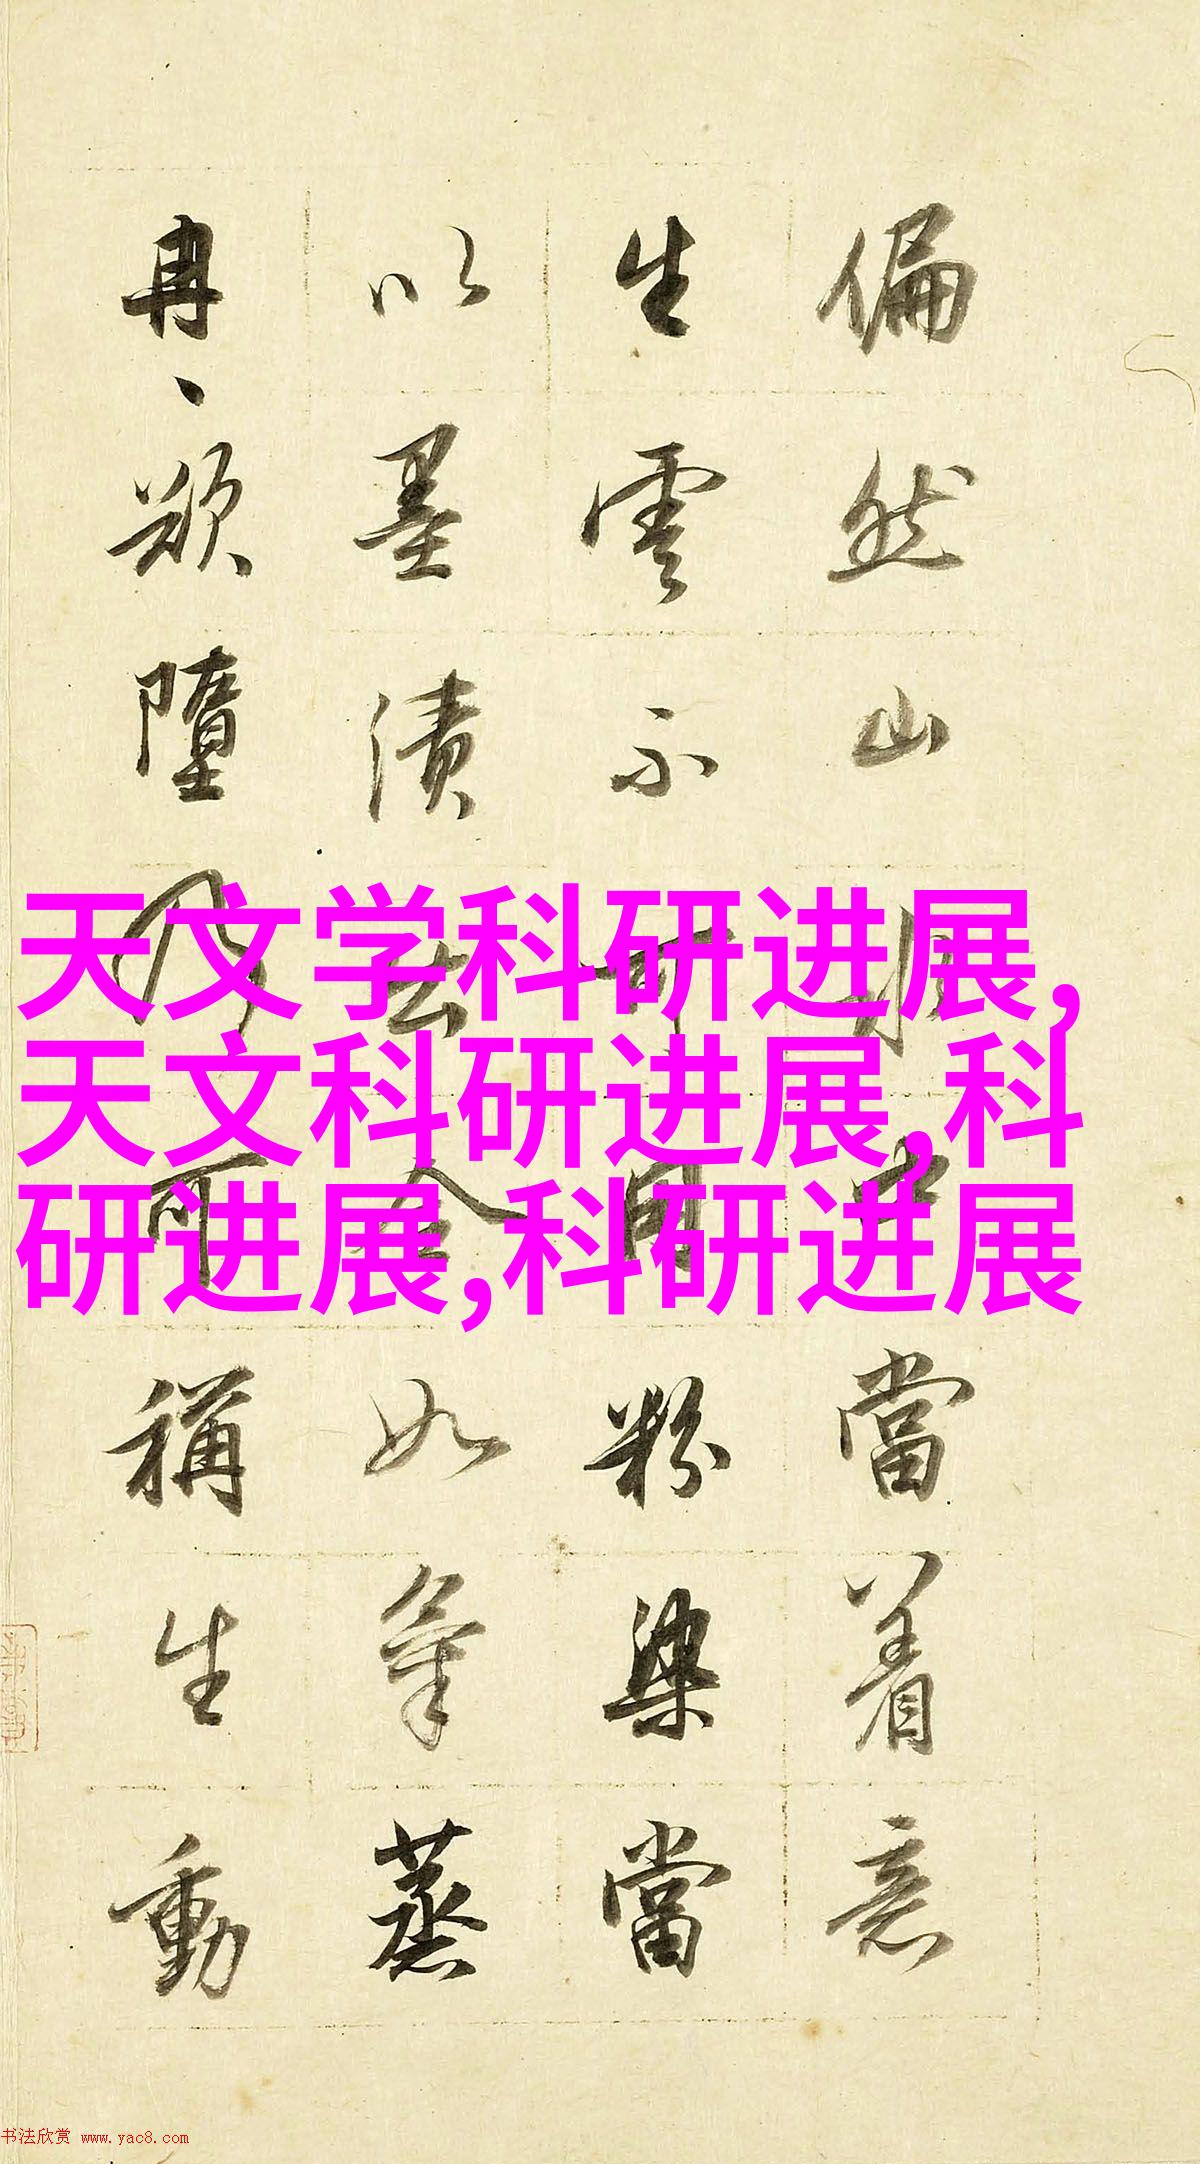 偏然山水中當着意
生雲不可用粉染當
以墨漬出令如氣蒸
冉、欲墮乃可稱生動
天文学科研进展,
天文科研进展,科
研进展,科研进展
书法欣赏 www.yac8.com